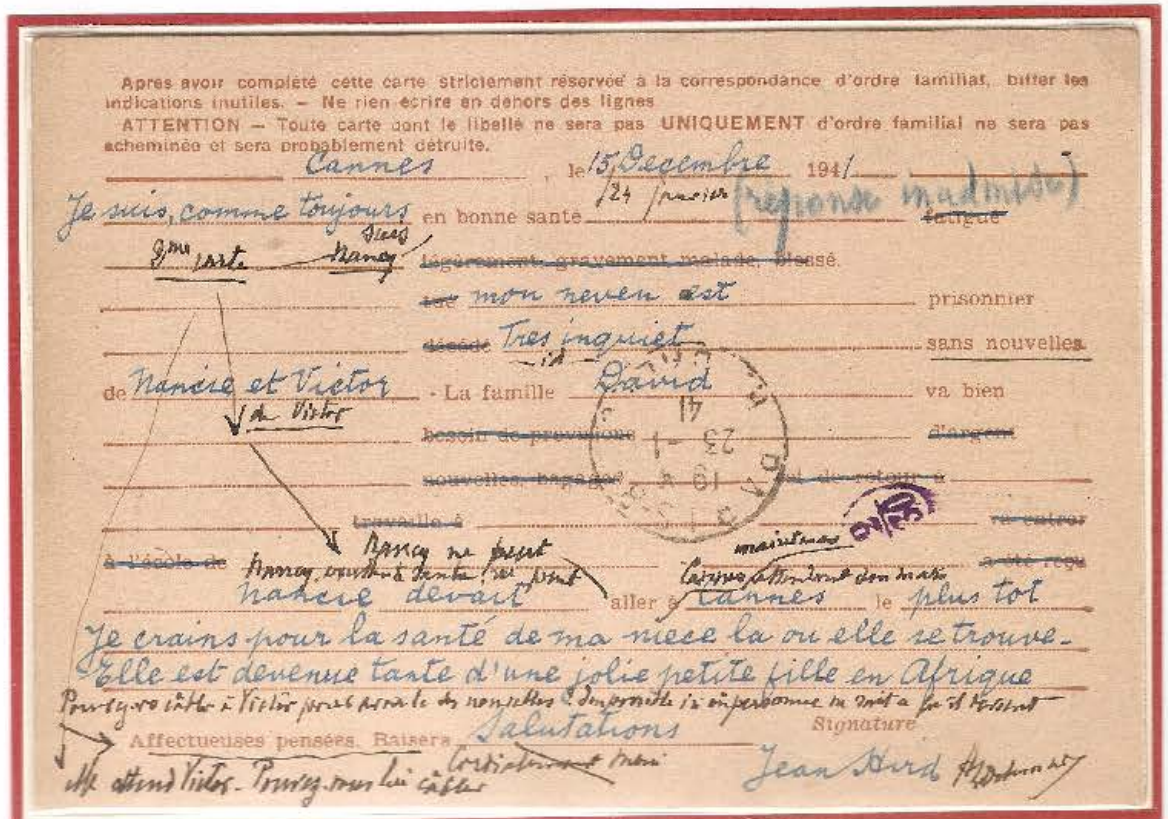 Apres avoir complété cette carte strictement réservée à la correspondance d'ordre familial, biffer les
indications inutiles. — Ne rien écrire en dehors des lignes
ATTENTION — Toute carte dont le libellé ne sera pas UNIQUEMENT d'ordre familial ne sera pas
acheminée et sera probablement détruite.
Cannes , le 15 Decembre 1941
24 janvier (réponse inadmise)
Je suis, comme toujours en bonne santé fatigué
suis
2me carte Nancy légèrement, gravement malade, blessé.
tué mon neveu est prisonnier
décédé Tres inquiet sans nouvelles
id
de Nancie et Victor - La famille David va bien
de Victor
besoin de provisions d'argent
nouvelles, bagages de retour à
travaille à va entrer
Nancy ne peut maintenant
à l'école de a été reçu
Nancy, santé, ne peut Cannes, attendant son mari
Nancie devait aller à Cannes le plus tot
Je crains pour la santé de ma niece la ou elle se trouve.
Elle est devenue tante d'une jolie petite fille en Afrique
Pouvez-vs câbler à Victor
Affectueuses pensées. Baisers Salutations Signature
Cordialement merci Jean Hurd
attend Victor. Pouvez-vous lui câbler
PARIS
19
23 -1
41